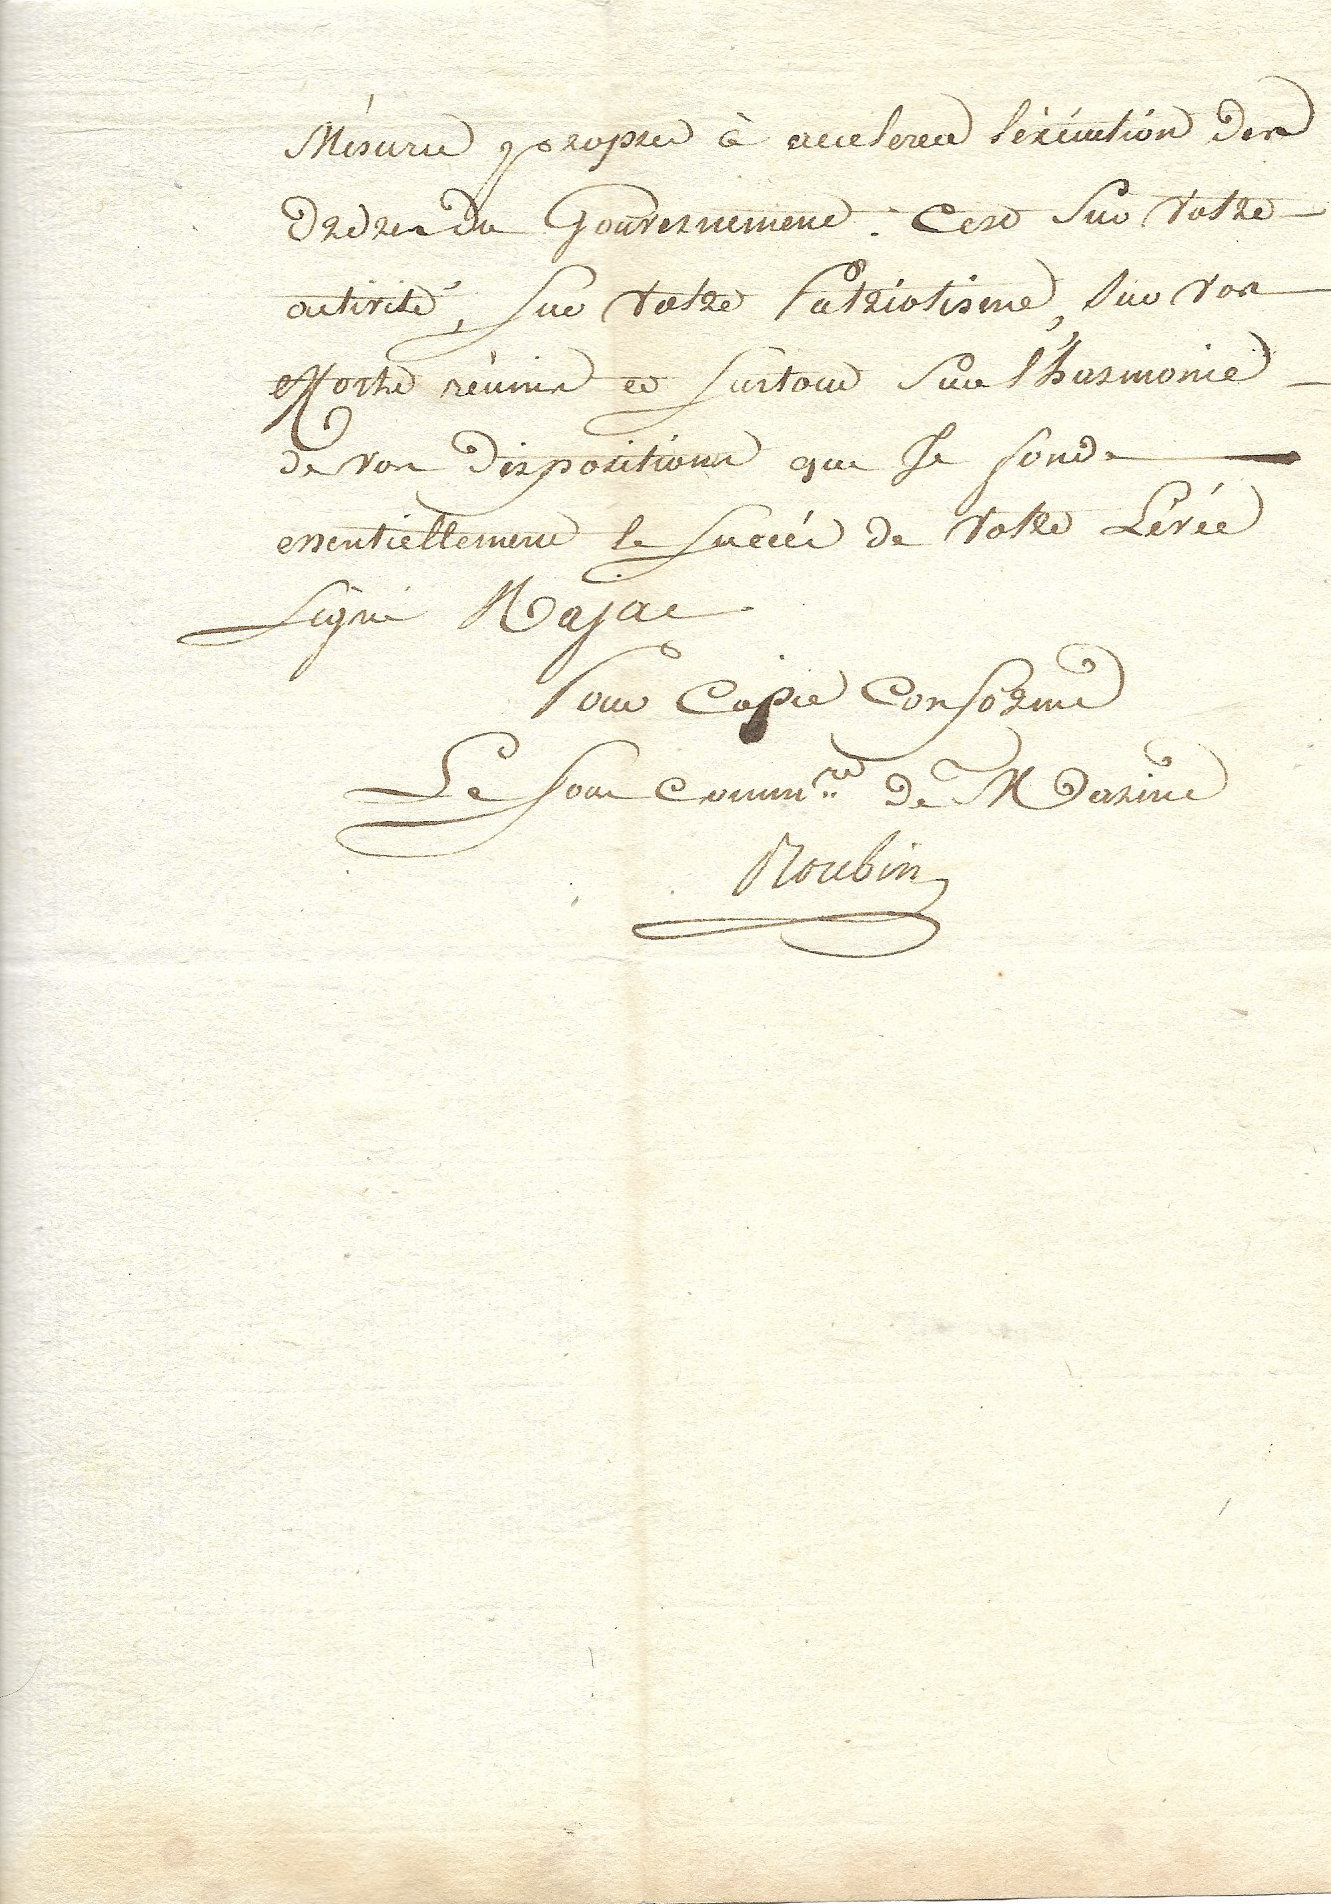 Mésures propres à accelerer l'éxécution des
Ordres du Gouvernement. C'est sur votre
activité, sur votre Patriotisme, sur vos
efforts réunis et surtout sur l'harmonie
de vos dispositions que Je fonde
essentiellement le succès de votre Lévée
Signé Najac
Pour Copie Conforme
Le sous comm.re de Marine
Roubin